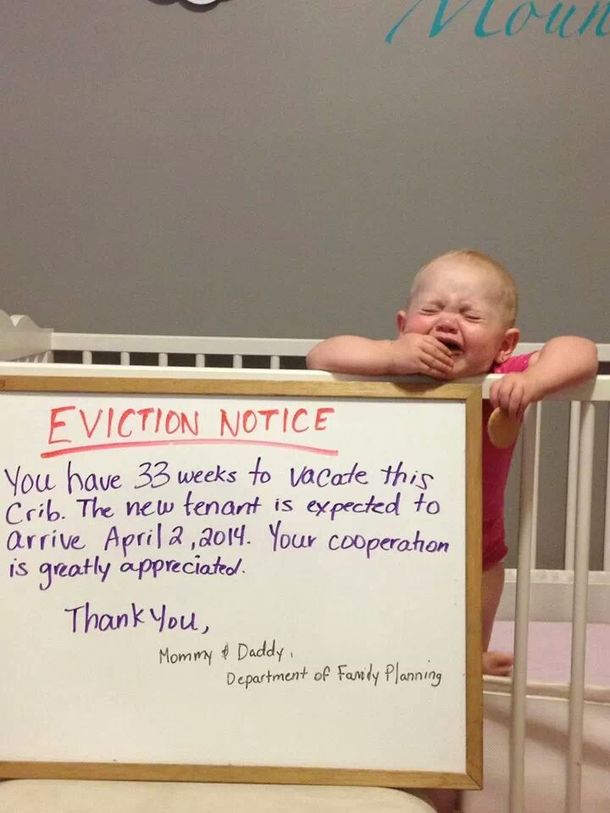 EVICTION NOTICE
You have 33 weeks to vacate this
Crib. The new tenant is expected to
arrive April 2, 2014. Your cooperation
is greatly appreciated.
Thank You,
Mommy & Daddy,
Department of Family Planning